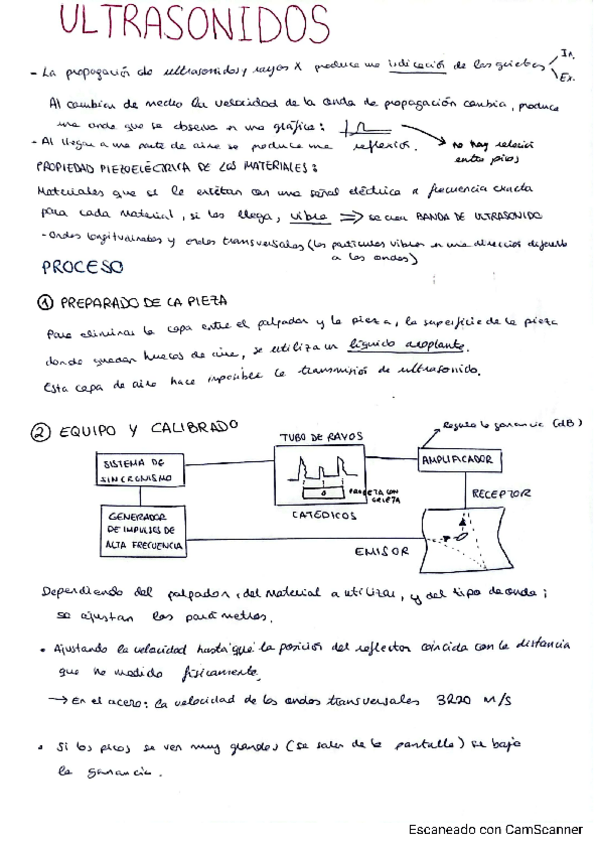 ULTRASONIDOS
- La propagación de ultrasonidos y rayos X produce una indicación de las grietas In.
Ex.
Al cambiar de medio la velocidad de la onda de propagación cambia, produce
una onda que se observa en una gráfica:
- Al llegar a una parte de aire se produce una reflexión.
no hay relación
entre picos
PROPIEDAD PIEZOELÉCTRICA DE LOS MATERIALES:
Materiales que si le excitan con una señal eléctrica a frecuencia exacta
para cada material, si les llega, vibra => se crea BANDA DE ULTRASONIDO
- Ondas longitudinales y ondas transversales (las partículas vibran en una dirección
a las ondas)
PROCESO
① PREPARADO DE LA PIEZA
Para eliminar la capa entre el palpador y la pieza, la superficie de la pieza
donde quedan huecos de aire, se utiliza un líquido acoplante.
Esta capa de aire hace imposible la transmisión de ultrasonido.
② EQUIPO Y CALIBRADO
Regula la ganancia (dB)
TUBO DE RAYOS
SISTEMA DE
SINCRONISMO
AMPLIFICADOR
PROBETA CON
GRIETA
RECEPTOR
CATÉDICOS
GENERADOR
DE IMPULSOS DE
ALTA FRECUENCIA
EMISOR
Dependiendo del palpador, del material a utilizar, y del tipo de onda;
se ajustan los parámetros.
• Ajustando la velocidad hasta que la posición del reflector coincida con la distancia
que ha medido físicamente.
→ En el acero: la velocidad de las ondas transversales 3220 M/S
• Si los picos se ven muy grandes (se salen de la pantalla) se baja
la ganancia.
Escaneado con CamScanner